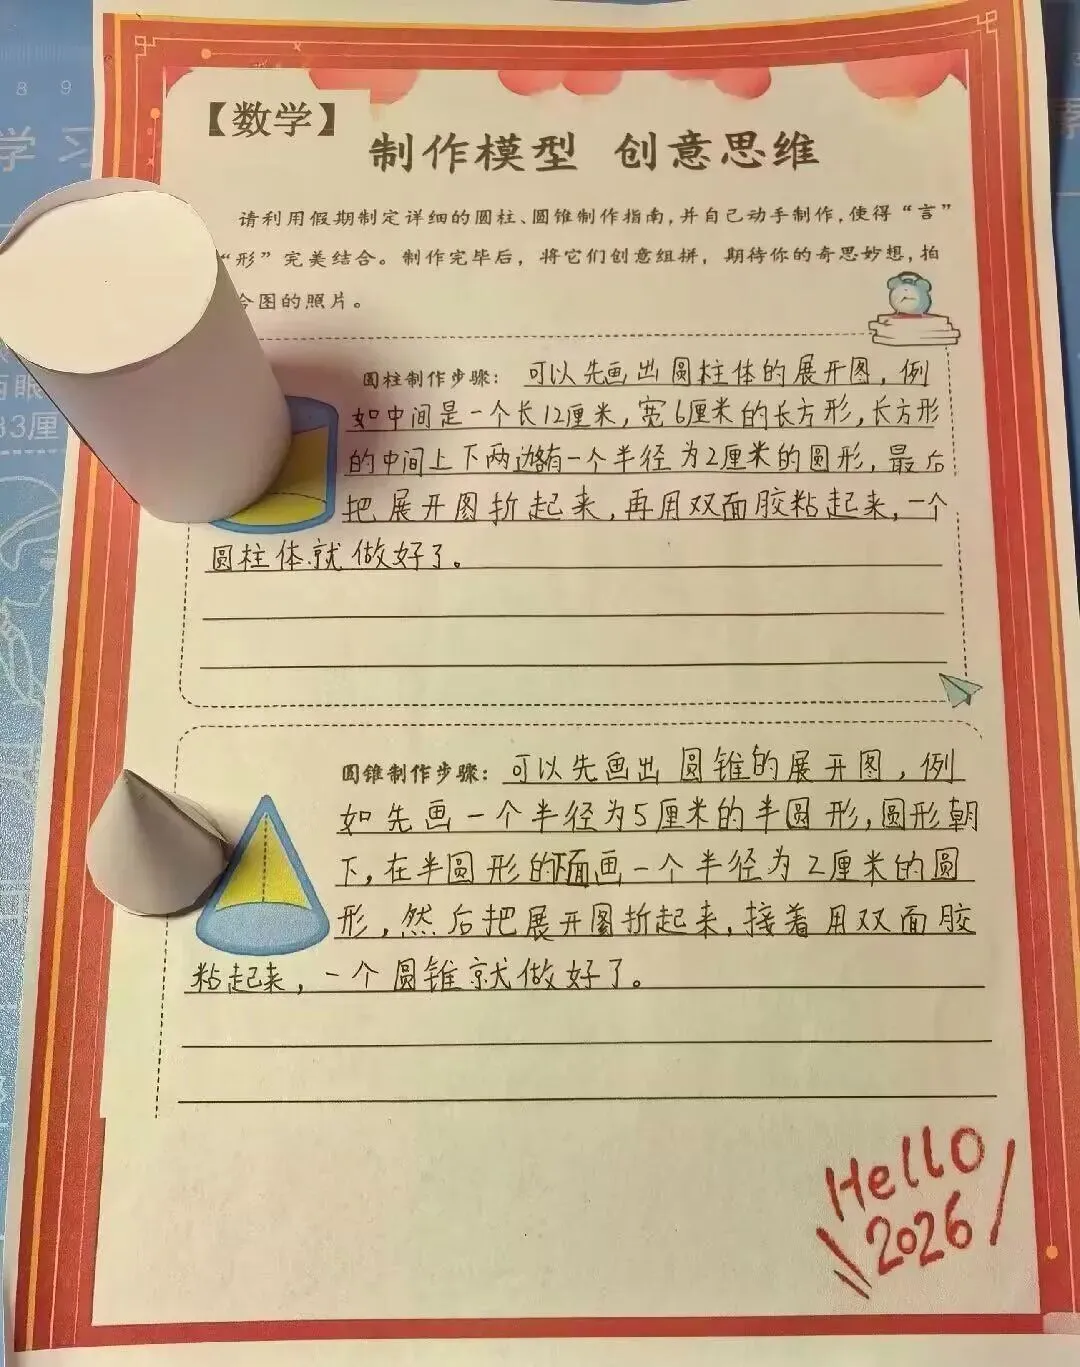 8 9
学习
【数学】
制作模型 创意思维
请利用假期制定详细的圆柱、圆锥制作指南,并自己动手制作,使得“言”
“形”完美结合。制作完毕后,将它们创意组拼,期待你的奇思妙想,拍
合图的照片。
两眼
33厘
圆柱制作步骤：可以先画出圆柱体的展开图，例
如中间是一个长12厘米，宽6厘米的长方形，长方形
的中间上下两边各有一个半径为2厘米的圆形，最后
把展开图折起来，再用双面胶粘起来，一个
圆柱体就做好了。
圆锥制作步骤：可以先画出圆锥的展开图，例
如先画一个半径为5厘米的半圆形，圆形朝
下，在半圆形的下面画一个半径为2厘米的圆
形，然后把展开图折起来，接着用双面胶
粘起来，一个圆锥就做好了。
Hello
2026